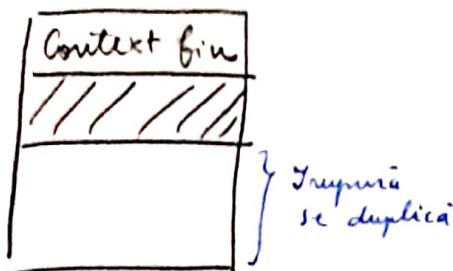 Context fiu
Impură
se duplică